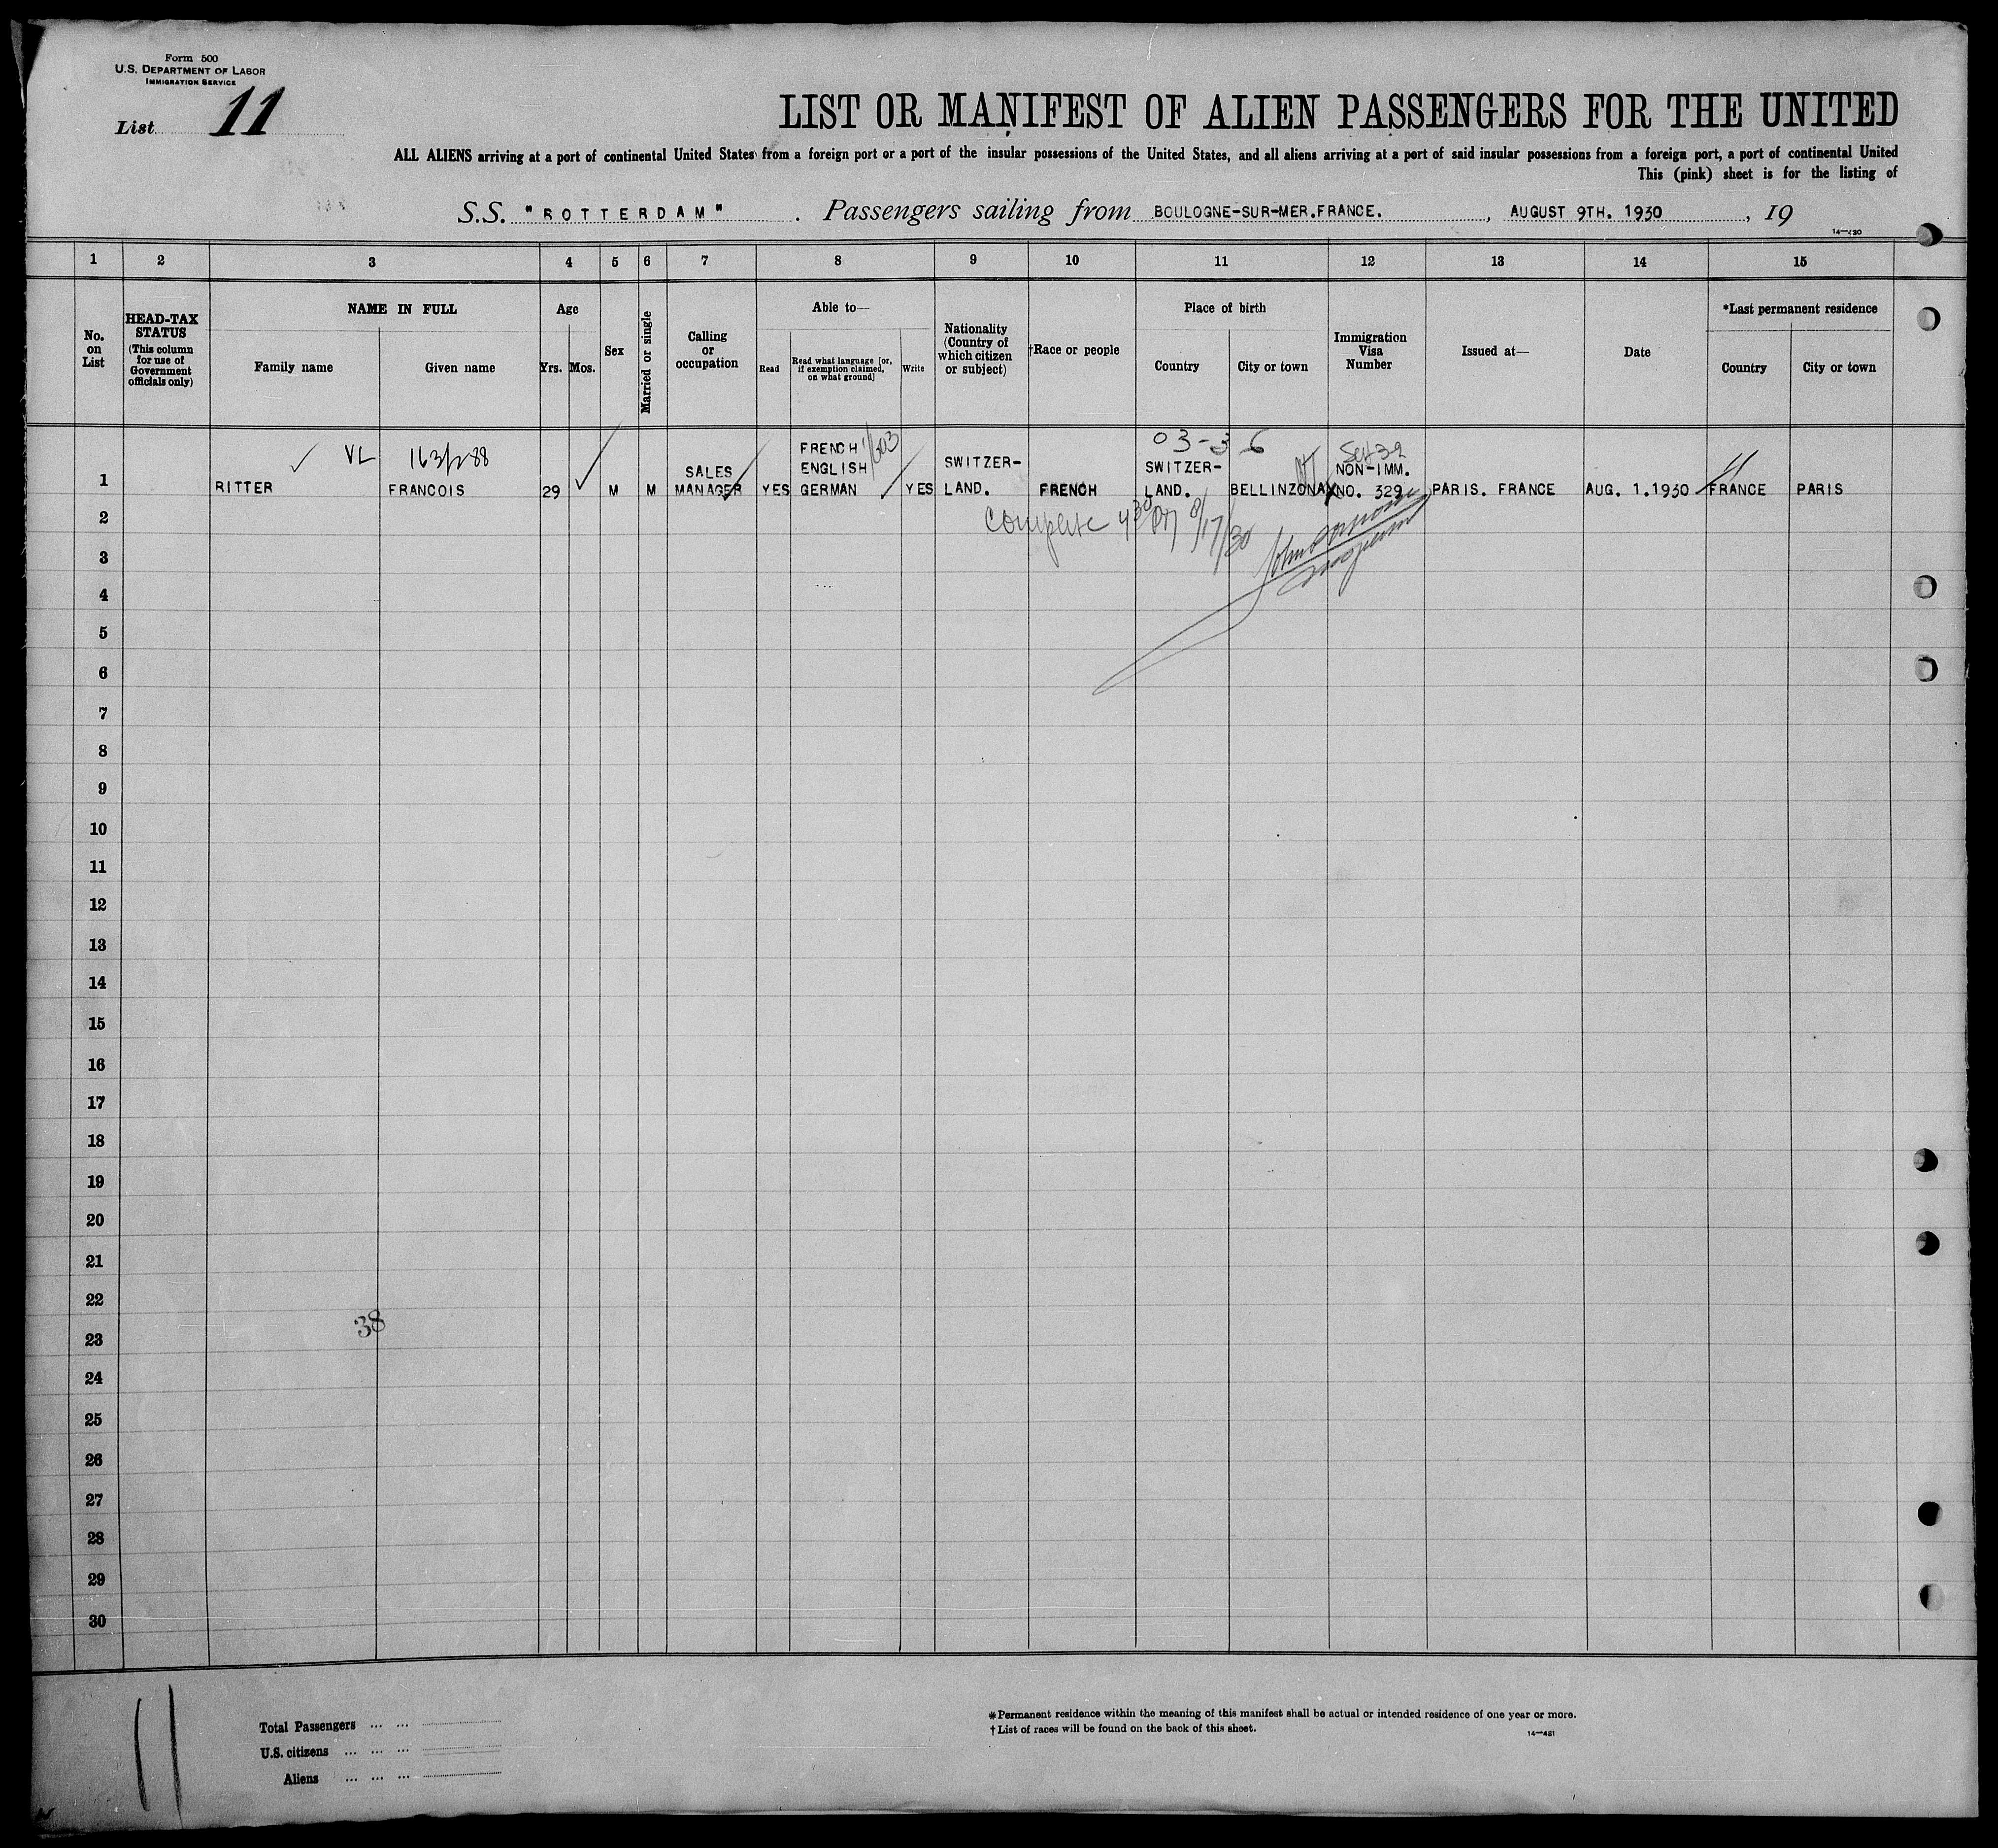 Form 500
U.S. DEPARTMENT OF LABOR
IMMIGRATION SERVICE
List 11
LIST OR MANIFEST OF ALIEN PASSENGERS FOR THE UNITED
ALL ALIENS arriving at a port of continental United States from a foreign port or a port of the insular possessions of the United States, and all aliens arriving at a port of said insular possessions from a foreign port, a port of continental United
This (pink) sheet is for the listing of
S.S. "ROTTERDAM" . Passengers sailing from BOULOGNE-SUR-MER.FRANCE. , AUGUST 9TH. 1930 , 19
1 2 3 4 5 6 7 8 9 10 11 12 13 14 15
No. on List
HEAD-TAX STATUS
(This column for use of Government officials only)
NAME IN FULL
Family name
Given name
Age
Yrs.
Mos.
Sex
Married or single
Calling or occupation
Able to—
Read
Read what language [or, if exemption claimed, on what ground]
Write
Nationality (Country of which citizen or subject)
†Race or people
Place of birth
Country
City or town
Immigration Visa Number
Issued at—
Date
*Last permanent residence
Country
City or town
VL 163/288 03-3 6
1 RITTER FRANCOIS 29 M M SALES MANAGER YES FRENCH ENGLISH GERMAN YES SWITZER-LAND. FRENCH SWITZER-LAND. BELLINZONA NON-IMM. NO. 329 PARIS. FRANCE AUG. 1.1930 FRANCE PARIS
2 Complete 4 30 PM 8/17/30
3
4
5
6
7
8
9
10
11
12
13
14
15
16
17
18
19
20
21
22
23 38
24
25
26
27
28
29
30
11
Total Passengers ... ...
U.S. citizens ... ... ...
Aliens ... ... ...
*Permanent residence within the meaning of this manifest shall be actual or intended residence of one year or more.
†List of races will be found on the back of this sheet.
14—431